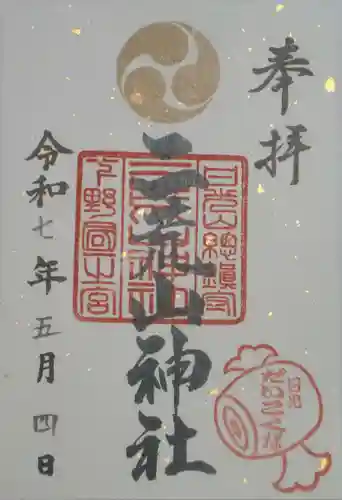 奉拝
日光山總鎮守
二荒山神社
二荒山神社
下野國一之宮
令和七年五月四日
日光